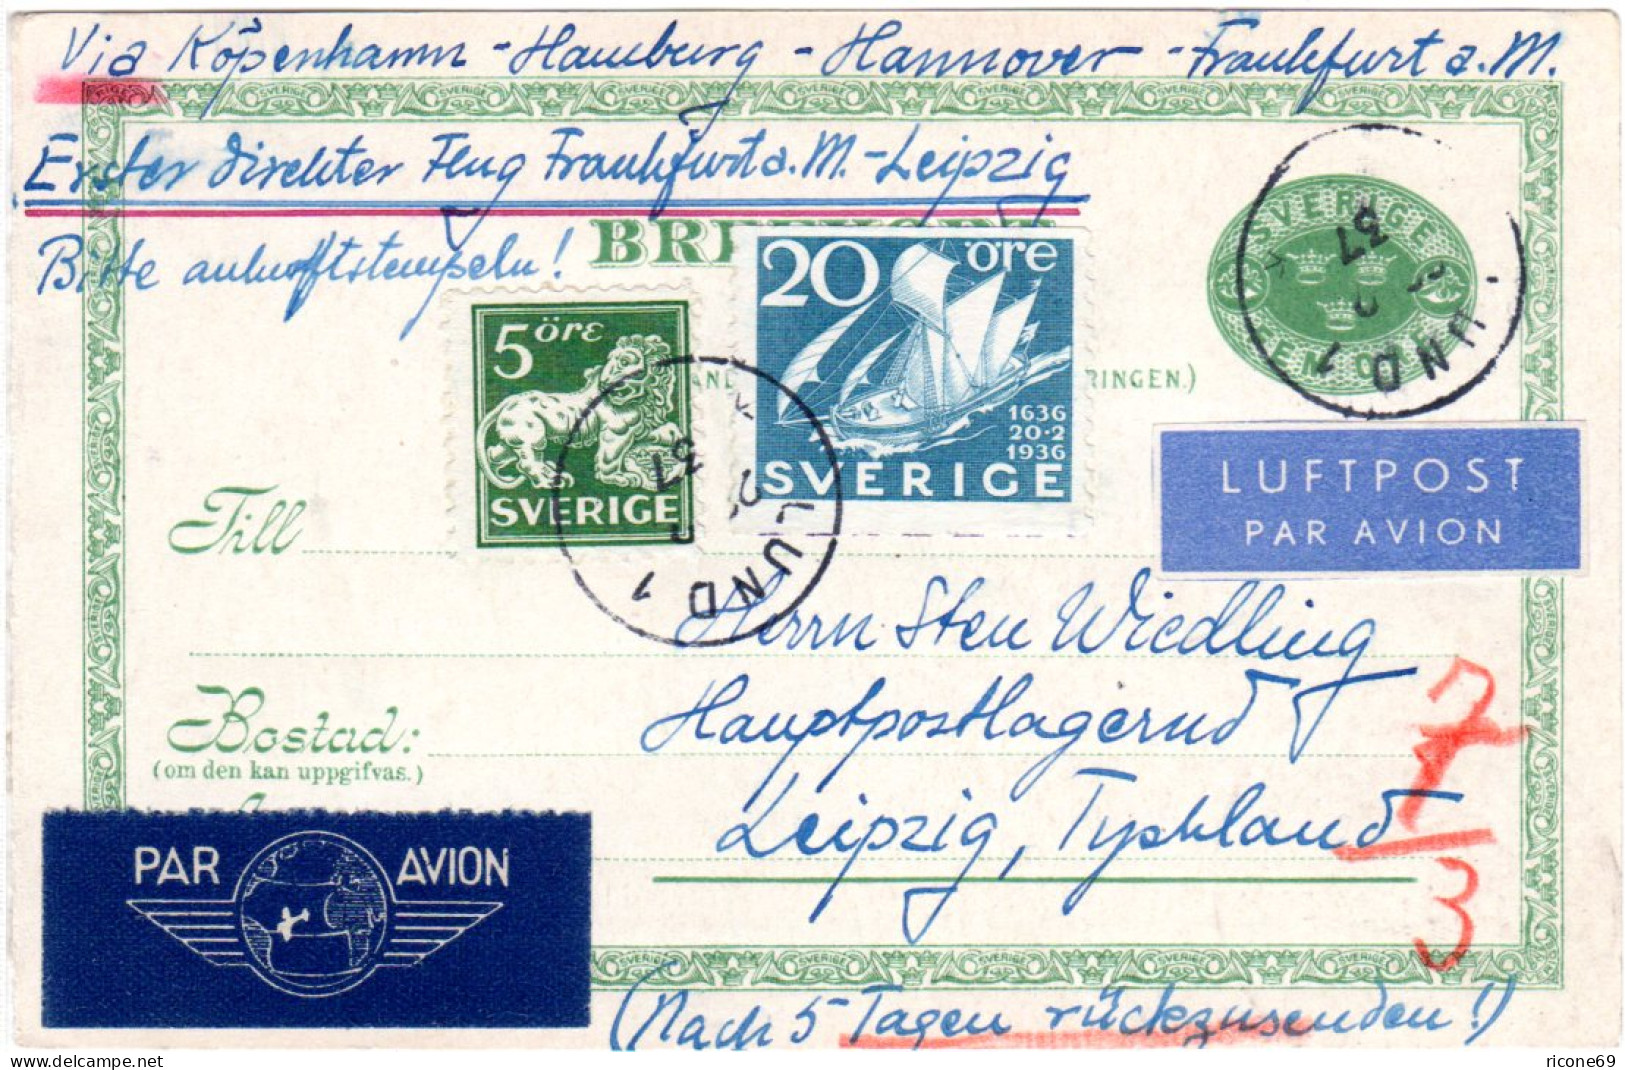 Via Köpenhamn - Hamburg - Hannover - Frankfurt a. M.
Erster direkter Flug Frankfurt a. M. - Leipzig
Bitte ankunftstempeln!
SVERIGE
FEM ÖRE
5 öre
SVERIGE
20 öre
1636
20·2
1936
SVERIGE
RINGEN.)
LUND 1
37
LUND 1
37
LUFTPOST
PAR AVION
Till
Herrn Sten Wiedling
Hauptpostlagernd
Bostad:
(om den kan uppgifvas.)
Leipzig, Tyskland
7
3
PAR AVION
(Nach 5 Tagen rückzusenden!)
delcampe.net
ricone69